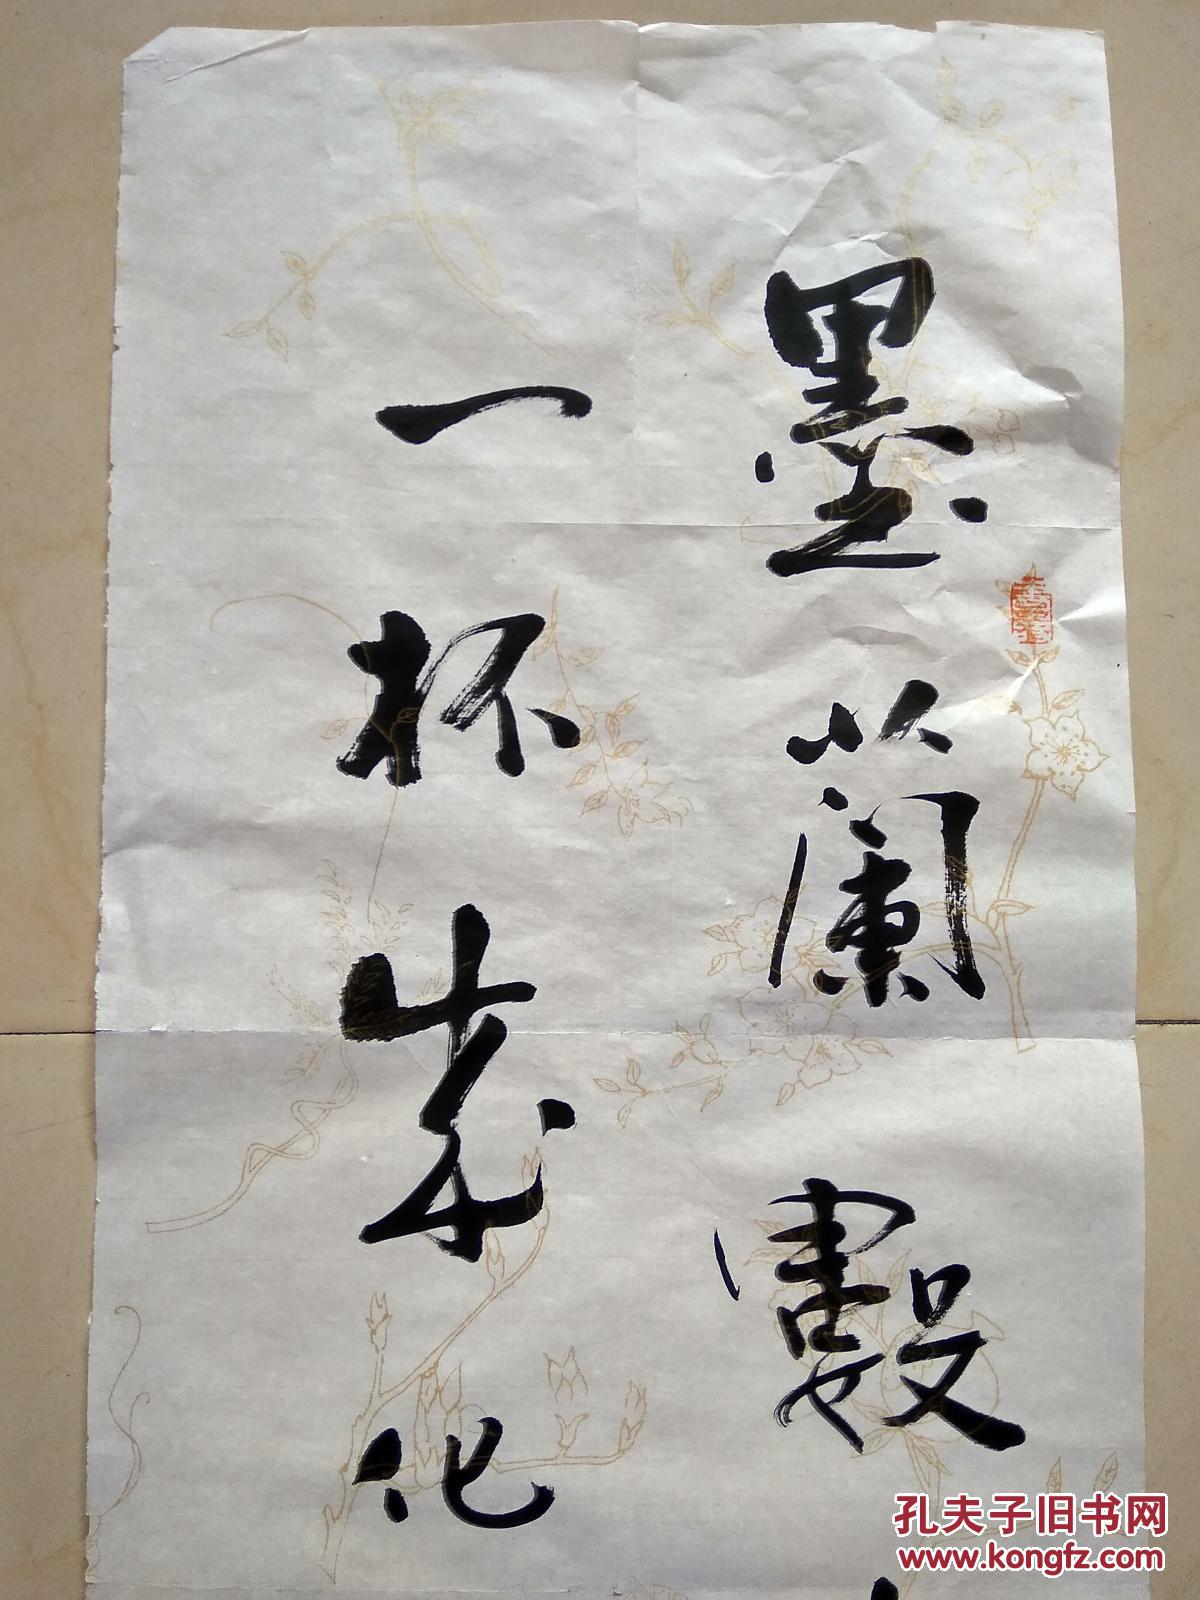 墨蘭數
一杯成化
孔夫子旧书网
www.kongfz.com